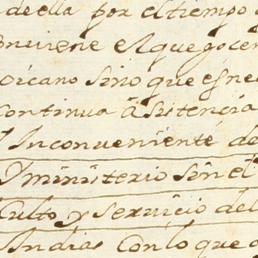 de ella por el tiempo
conviene el que goce
oicano sino que es ne
continua asistencia
Inconveniente de
Ministerio sin el
Culto y servicio del
Indias con lo que